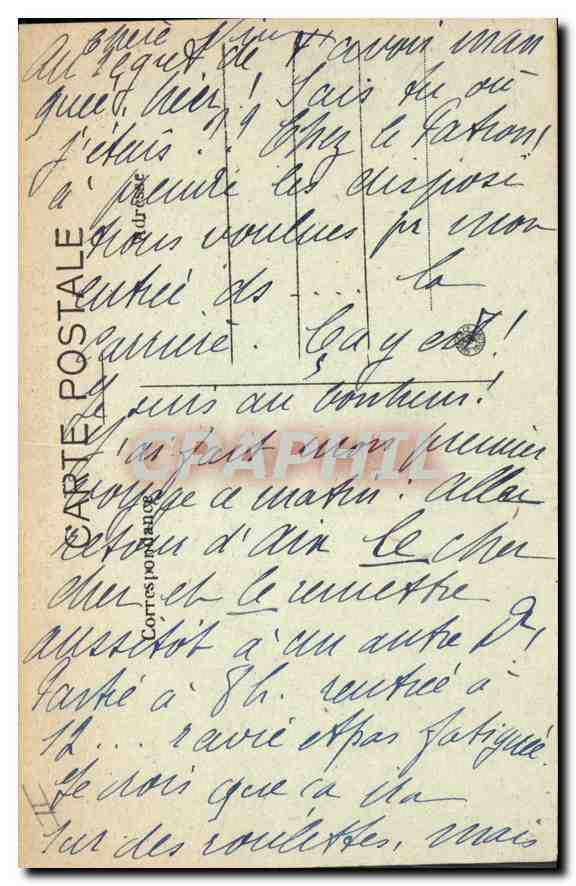 Chère
Au regret de t'avoir man
quée, hier! Sais tu où
j'étais?!! Chez le Patron!
à prendre les disposi
tions voulues pr mon
entrée ds .... la
carrière. Ça y est!
J'y suis au bonheur!
J'ai fait mon premier
voyage ce matin: Aller
retour d'Aix le cher
cher et le remettre
aussitôt à un autre Dr!
Partie à 8h. rentrée à
12... ravie et pas fatiguée.
Je crois que ça ira
sur des roulettes, mais
II
CARTE POSTALE
Correspondance
Adresse
CPAPHIL